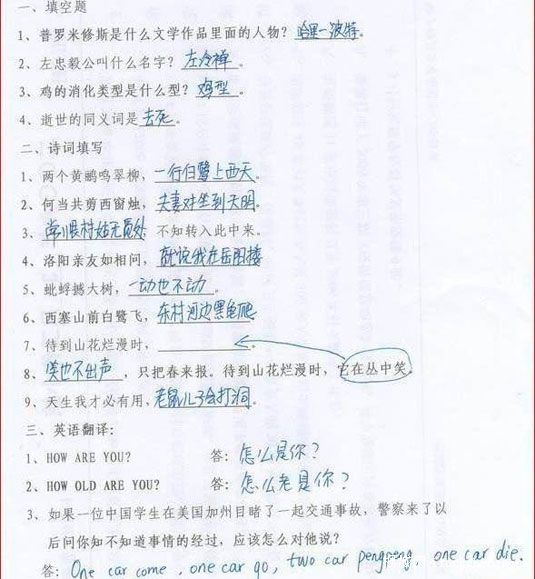 一、填空题
1、普罗米修斯是什么文学作品里面的人物？哈里一波特。
2、左忠毅公叫什么名字？左冷禅。
3、鸡的消化类型是什么型？鸡型。
4、逝世的同义词是去死。
二、诗词填写
1、两个黄鹂鸣翠柳，一行白鹭上西天。
2、何当共剪西窗烛，夫妻对坐到天明。
3、常恨村姑无觅处 不知转入此中来。
4、洛阳亲友如相问，就说我在岳阳楼
5、蚍蜉撼大树，一动也不动。
6、西塞山前白鹭飞，东村河边黑龟爬
7、待到山花烂漫时，。
8、笑也不出声，只把春来报。待到山花烂漫时，它在丛中笑。
9、天生我才必有用，老鼠儿子会打洞。
三、英语翻译：
1、HOW ARE YOU? 答：怎么是你？
2、HOW OLD ARE YOU? 答：怎么老是你？
3、如果一位中国学生在美国加州目睹了一起交通事故，警察来了以
后问你知不知道事情的经过，应该怎么对他说？
答：One car come, one car go, two car pengpeng, one car die.